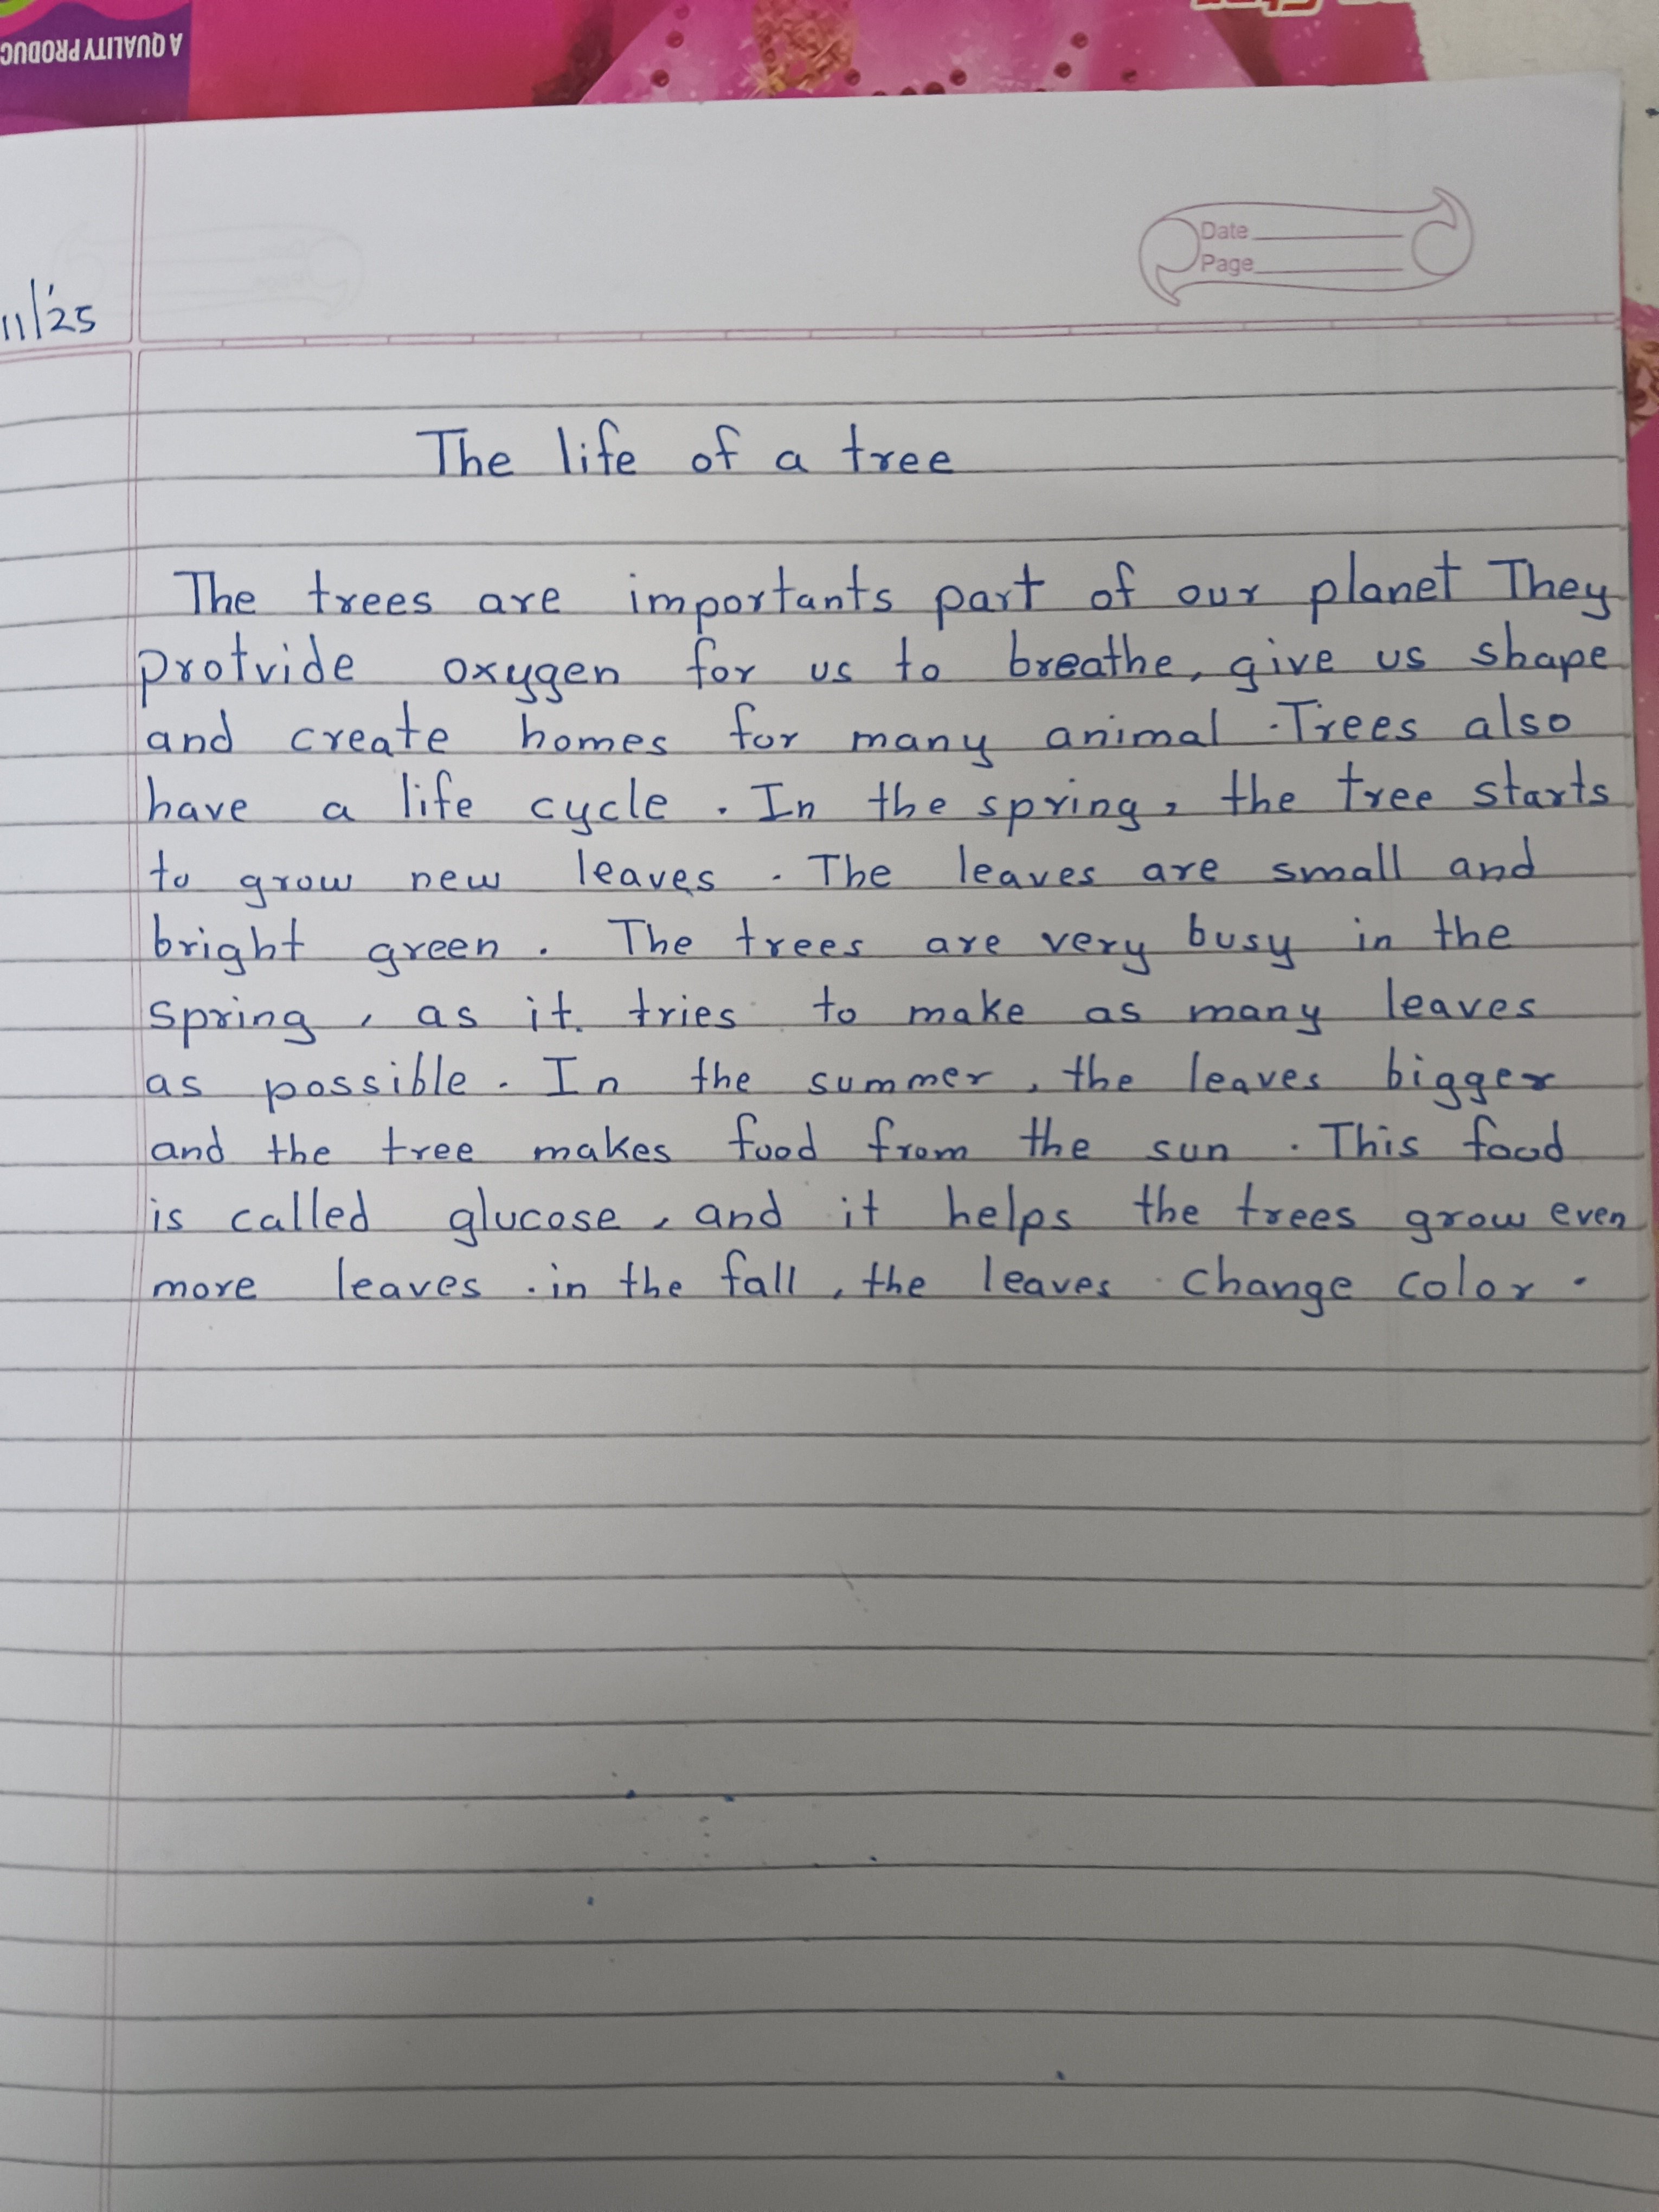 A QUALITY PRODUC
Date
Page
11/'25
The life of a tree
The trees are importants part of our planet They
protvide oxygen for us to breathe, give us shape
and create homes for many animal . Trees also
have a life cycle . In the spring, the tree starts
to grow new leaves . The leaves are small and
bright green . The trees are very busy in the
spring , as it tries to make as many leaves
as possible . In the summer , the leaves bigger
and the tree makes food from the sun . This food
is called glucose , and it helps the trees grow even
more leaves . in the fall , the leaves change color .